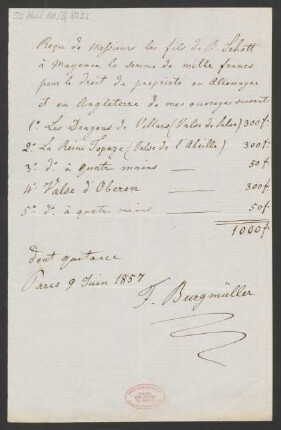 Reçu de Messieurs les fils de B. Schott
à Mayence la somme de mille francs
pour le droit de propriété en Allemagne
et en Angleterre de mes ouvrages suivants
1º Les Dragons de Villars (Valse de Salon) 300f.
2º La Reine Topaze (Valse de l'Abeille) 300f
3º dº à quatre mains — 50f
4º Valse d'Oberon — 300f
5º dº à quatre mains — 50f.
1000f
dont quittance
Paris 9 Juin 1857
F. Burgmüller